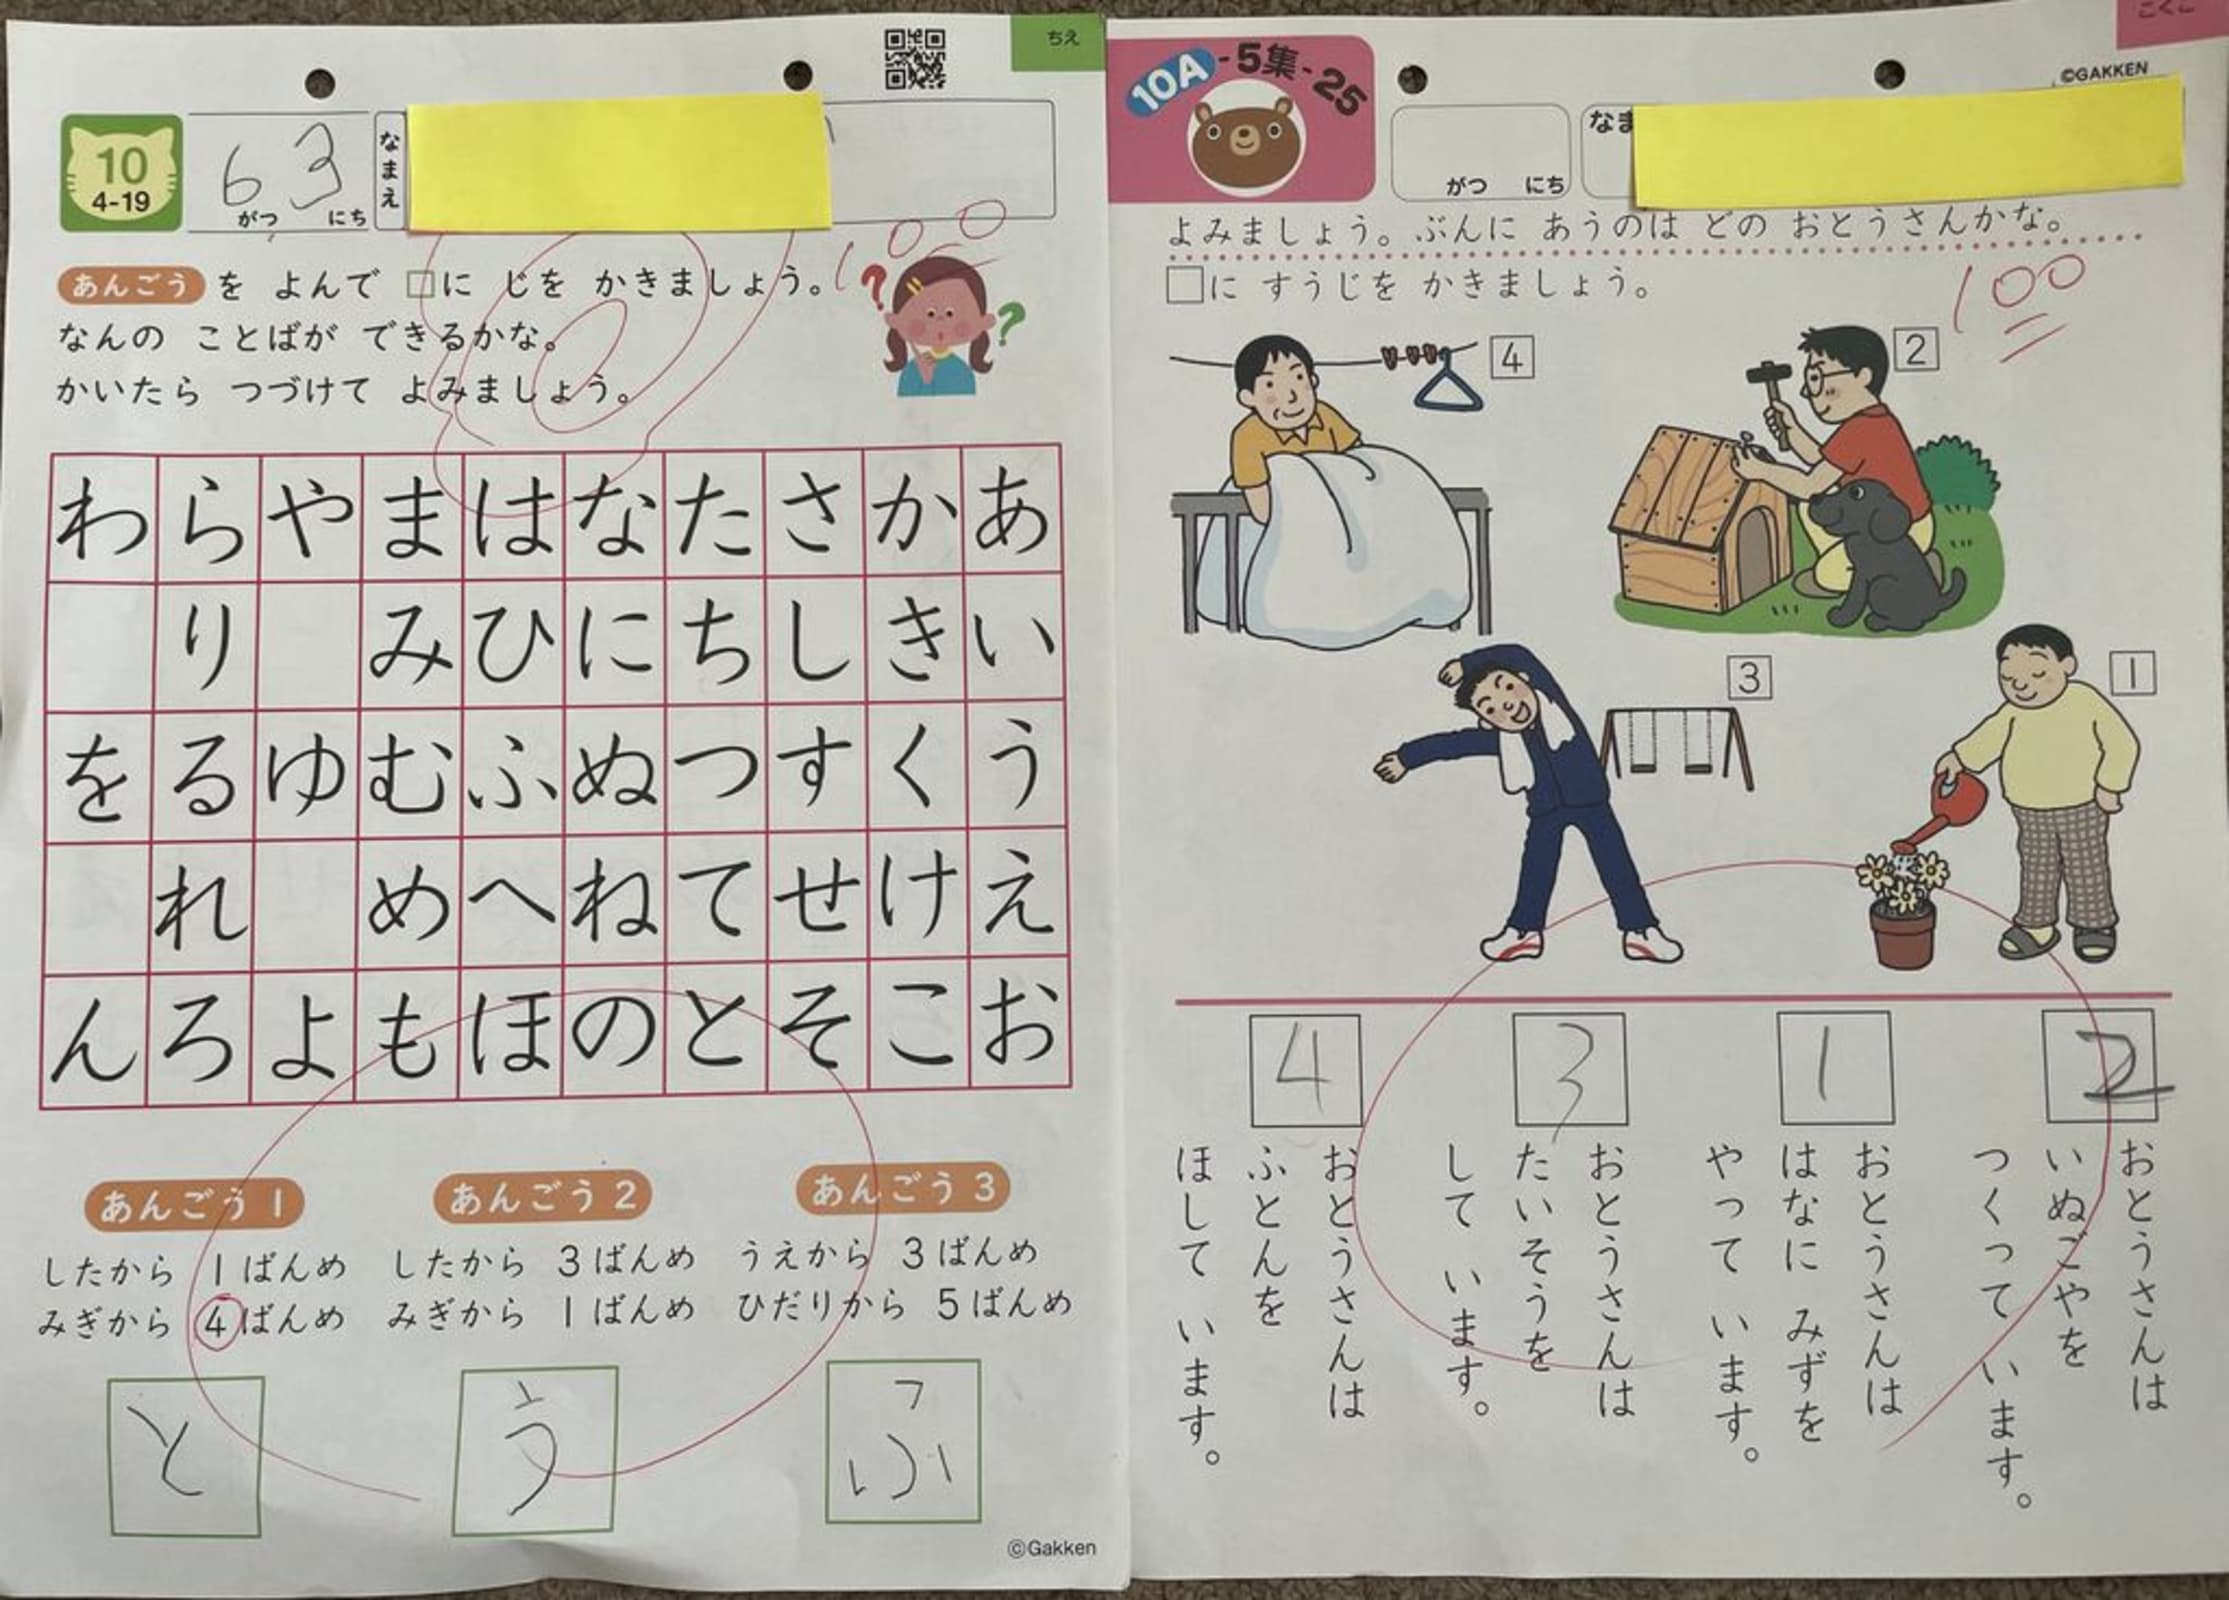 ちえ
10
4-19
6がつ 3にち
なまえ
100
あんごう を よんで □に じを かきましょう。
なんの ことばが できるかな。
かいたら つづけて よみましょう。
? ?
わ ら や ま は な た さ か あ
り み ひ に ち し き い
を る ゆ む ふ ぬ つ す く う
れ め へ ね て せ け え
ん ろ よ も ほ の と そ こ お
あんごう1
したから 1ばんめ
みぎから 4ばんめ
と
あんごう2
したから 3ばんめ
みぎから 1ばんめ
う
あんごう3
うえから 3ばんめ
ひだりから 5ばんめ
ふ
©Gakken
こくご
10A-5集-25
©GAKKEN
がつ にち
なま
よみましょう。ぶんに あうのは どの おとうさんかな。
□に すうじを かきましょう。
100
4
2
3
1
2
おとうさんは
いぬごやを
つくって います。
1
おとうさんは
はなに みずを
やって います。
3
おとうさんは
たいそうを
して います。
4
おとうさんは
ふとんを
ほして います。